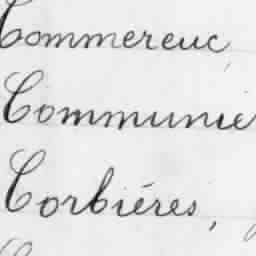 Commereuc
Communie
Corbiéres,